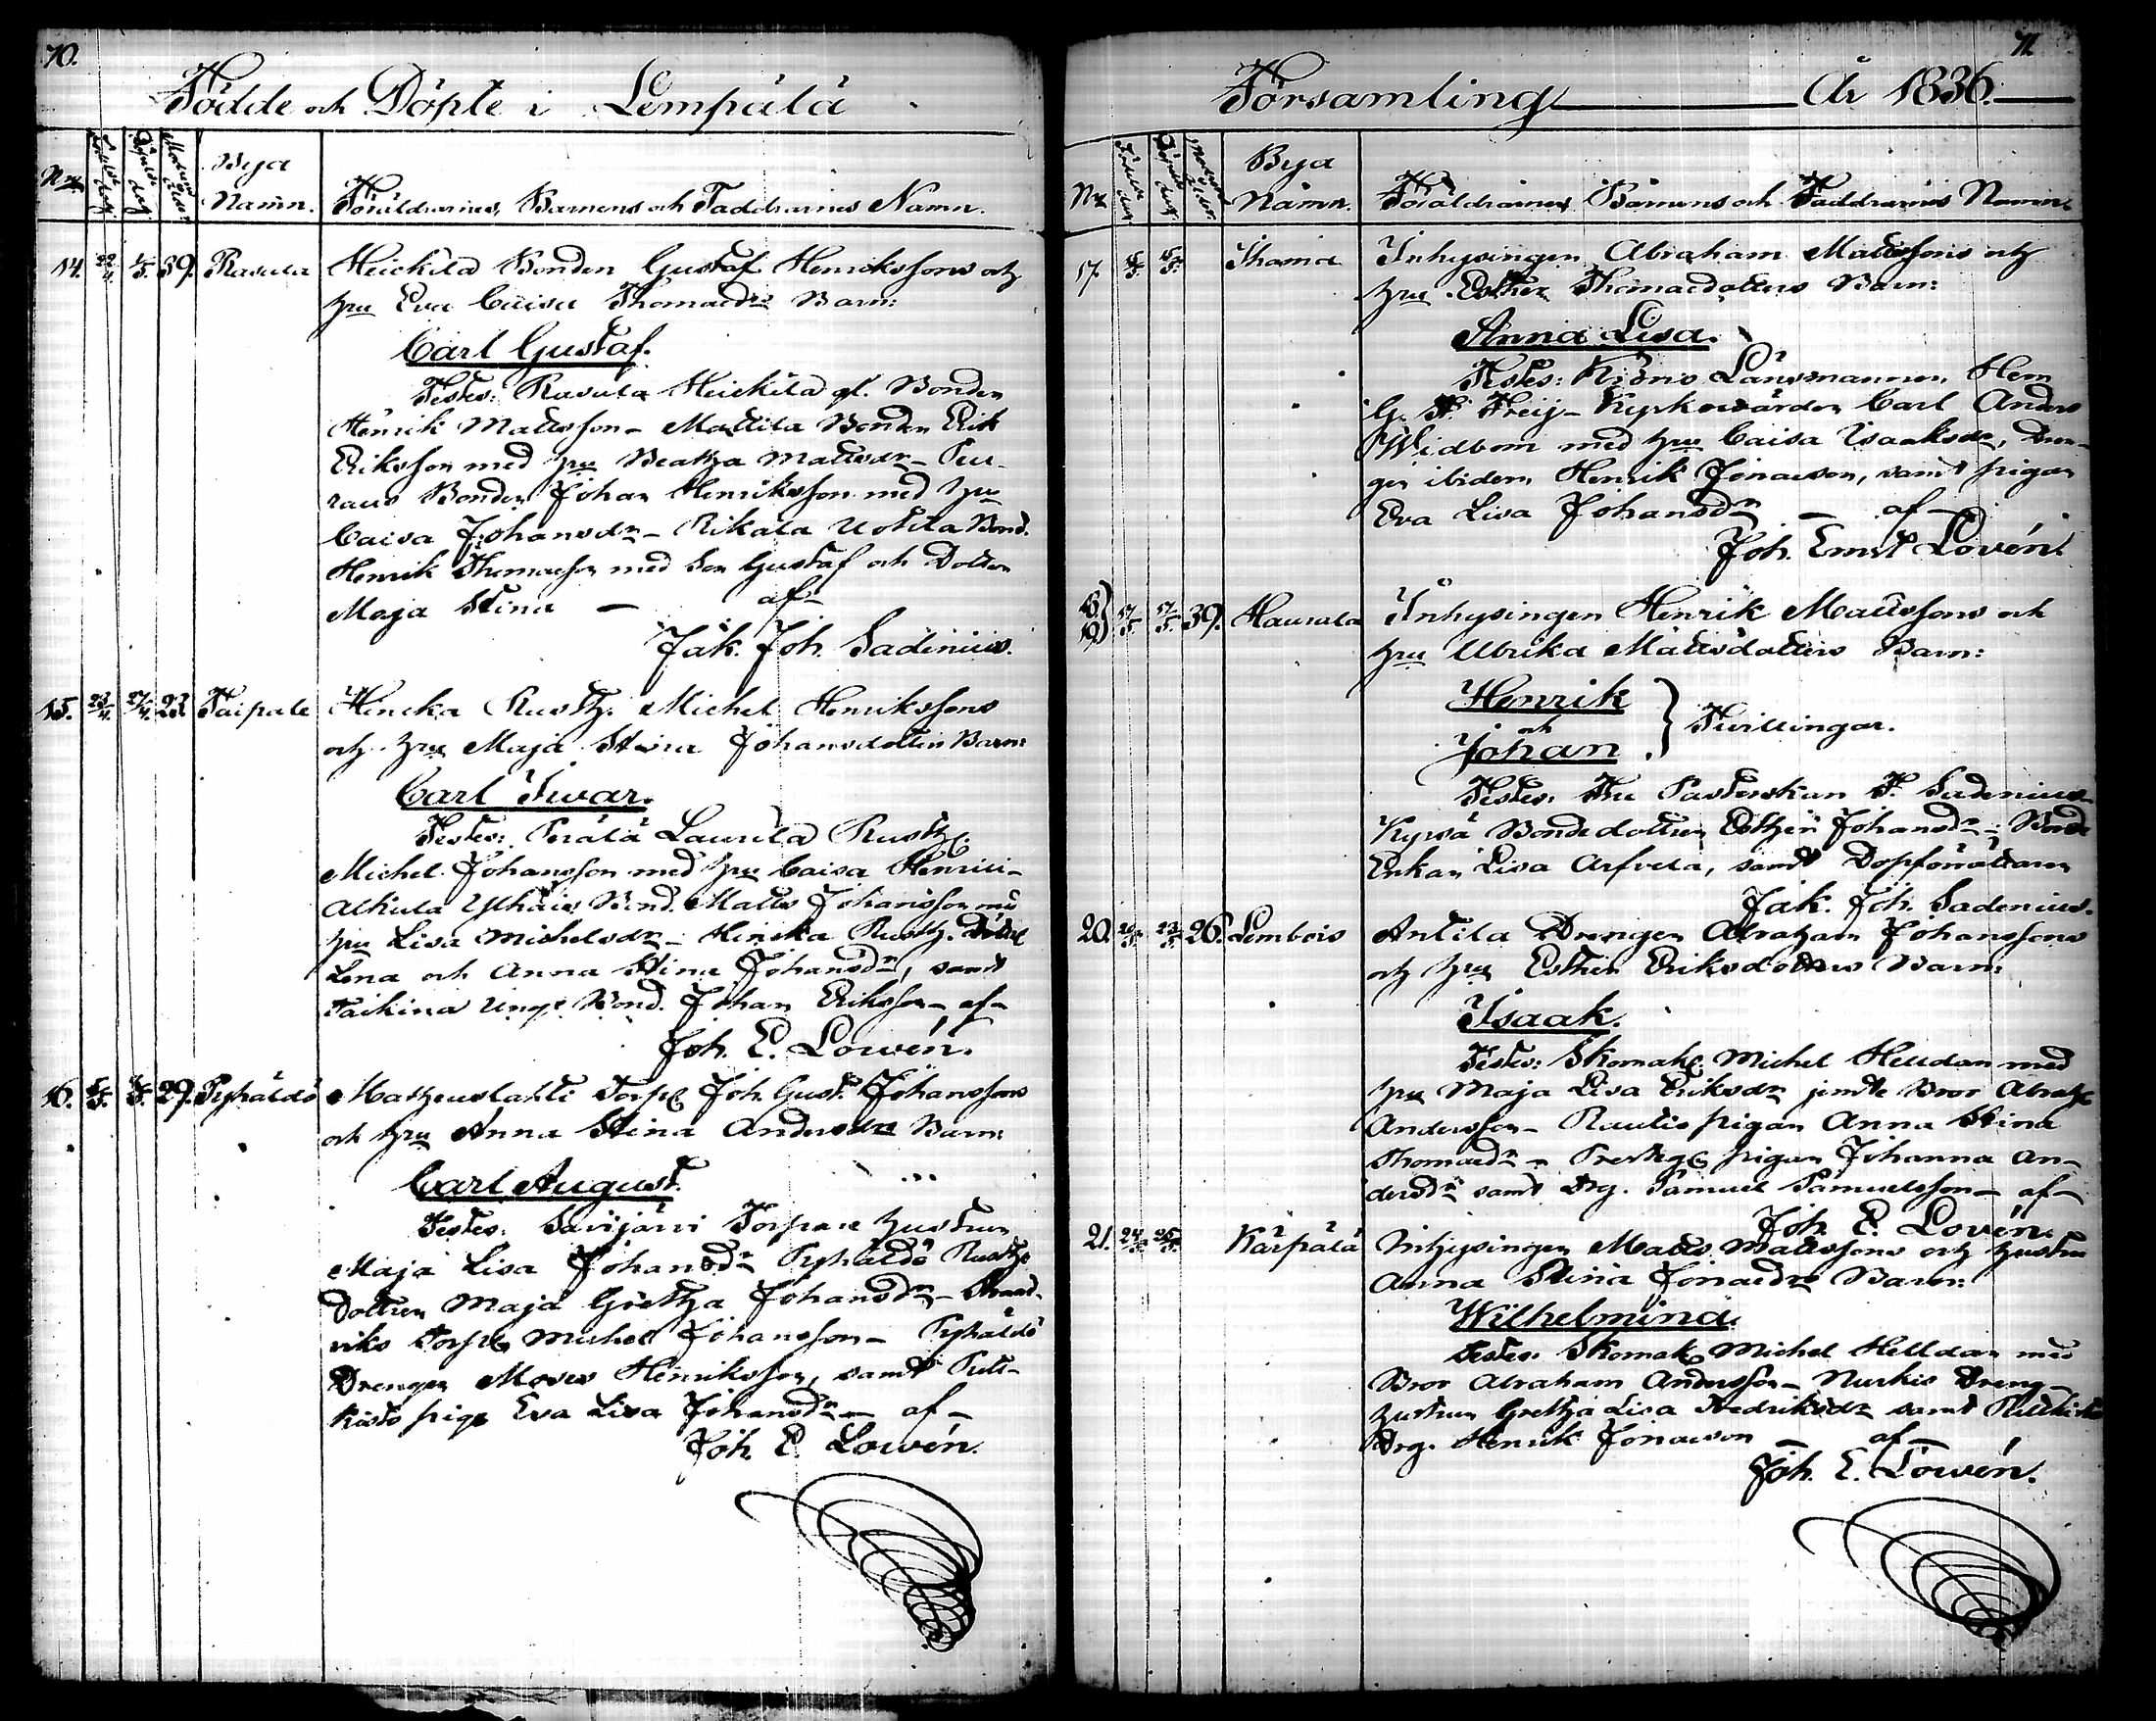 70.
Födde och Döpte i Lempälä
Nr
Födelse dag
Döpelse dag
Modrens ålder
Bya Namn.
Föräldrarnes, Barnens och Faddrarnes Namn.
14. 22/4 1/5 39. Rasula Heickilä Bonden Gustaf Henrikssons och
hru Eva Caisa Thomaedr Barn:
Carl Gustaf.
Testes: Rasula Heickilä gl. Bonden
Henrik Mattsson - Mattila Bonden Erik
Eriksson med hru Beatha Mattsdr -
Bonden Johan Henriksson med hru
Caisa Johansdr - Rikala Uotila Bond.
Henrik Thomaesson med Son Gustaf och Dottren
Maja Stina - af -
Jak. Joh. Sadenius.
15. 23/4 27/4 23 Taipale Hincka Rusth. Michel Henrikssons
och hru Maja Stina Johansdotters Barn:
Carl Iwar.
Testes: Perälä Laurila Rusth.
Michel Johansson med hru Caisa Henrici -
Alkula Bond. Matts Johansson med
hru Lisa Michelsdr - Hincka Rusth.
Lena och Anna Stina Johansdr, samt
unge Bond. Johan Eriksson - af -
Joh. E. Lowén.
16. 29. Pyhäldö Matheuslahti Torp. Joh. Gust. Johanssons
och hru Anna Stina Andersdr Barn:
Carl August.
Testes: Savijärvi Torpare hustrun
Maja Lisa Johansdr Pyhäldö Rusth.
Dottren Maja Gretha Johansdr -
Torp. Michel Johansson - Pyhäldö
Drengen Moses Henriksson, samt
piga Eva Lisa Johansdr - af -
Joh. E. Lowén.
71.
Församling År 1836.
Nr
Födelse dag
Döpelse dag
Modrens ålder
Bya Namn.
Föräldrarnes, Barnens och Faddrarnes Namn
17. Inhysingen Abraham Mattssons och
hru Esther Thomaedotters Barn:
Anna Lisa.
Testes: Krono Länsmannen Herr
G. F. Freij - Kyrkovärden Carl Anders
Widbom med hru Caisa Isaaksdr, Dren-
gen ibidem Henrik Jonaeson, samt pigan
Eva Lisa Johansdr - af -
Joh. Ernst Lovén.
18 19 17/5 17/5 39. Haurala Inhysingen Henrik Mattssons och
hru Ulrika Mattsdotters Barn:
Henrik
och
Johan
Tvillingar.
Testes: Fru Pastorskan F. Sadenius
Kyrsä Bondedottren Esther Johansdr - Bonde
Enkan Lisa Arfvela, samt Dopförrättaren
Jak. Joh. Sadenius.
20. 20/5 23/5 26. Lembois Antila Drengen Abraham Johanssons
och hru Esther Eriksdotters Barn:
Isaak.
Testes: Skomak. Michel Helldan med
hru Maja Lisa Eriksdr jemte Bror Abrah.
Andersson - Rautis pigan Anna Stina
Thomaedr - Prestg. pigan Johanna An-
dersdr samt Drg. Samuel Samuelsson - af -
Joh. E. Lovén.
21. 24/5 25/5 Kärpälä Inhysingen Matts Mattssons och hustru
Anna Stina Jonaedrs Barn:
Wilhelmina.
Testes: Skomak. Michel Helldan med
Bror Abraham Andersson - Nurkis Dreng
hustrun Gretha Lisa Fredriksdr samt
Drg. Henrik Jonaeson - af -
Joh. E. Lowén.